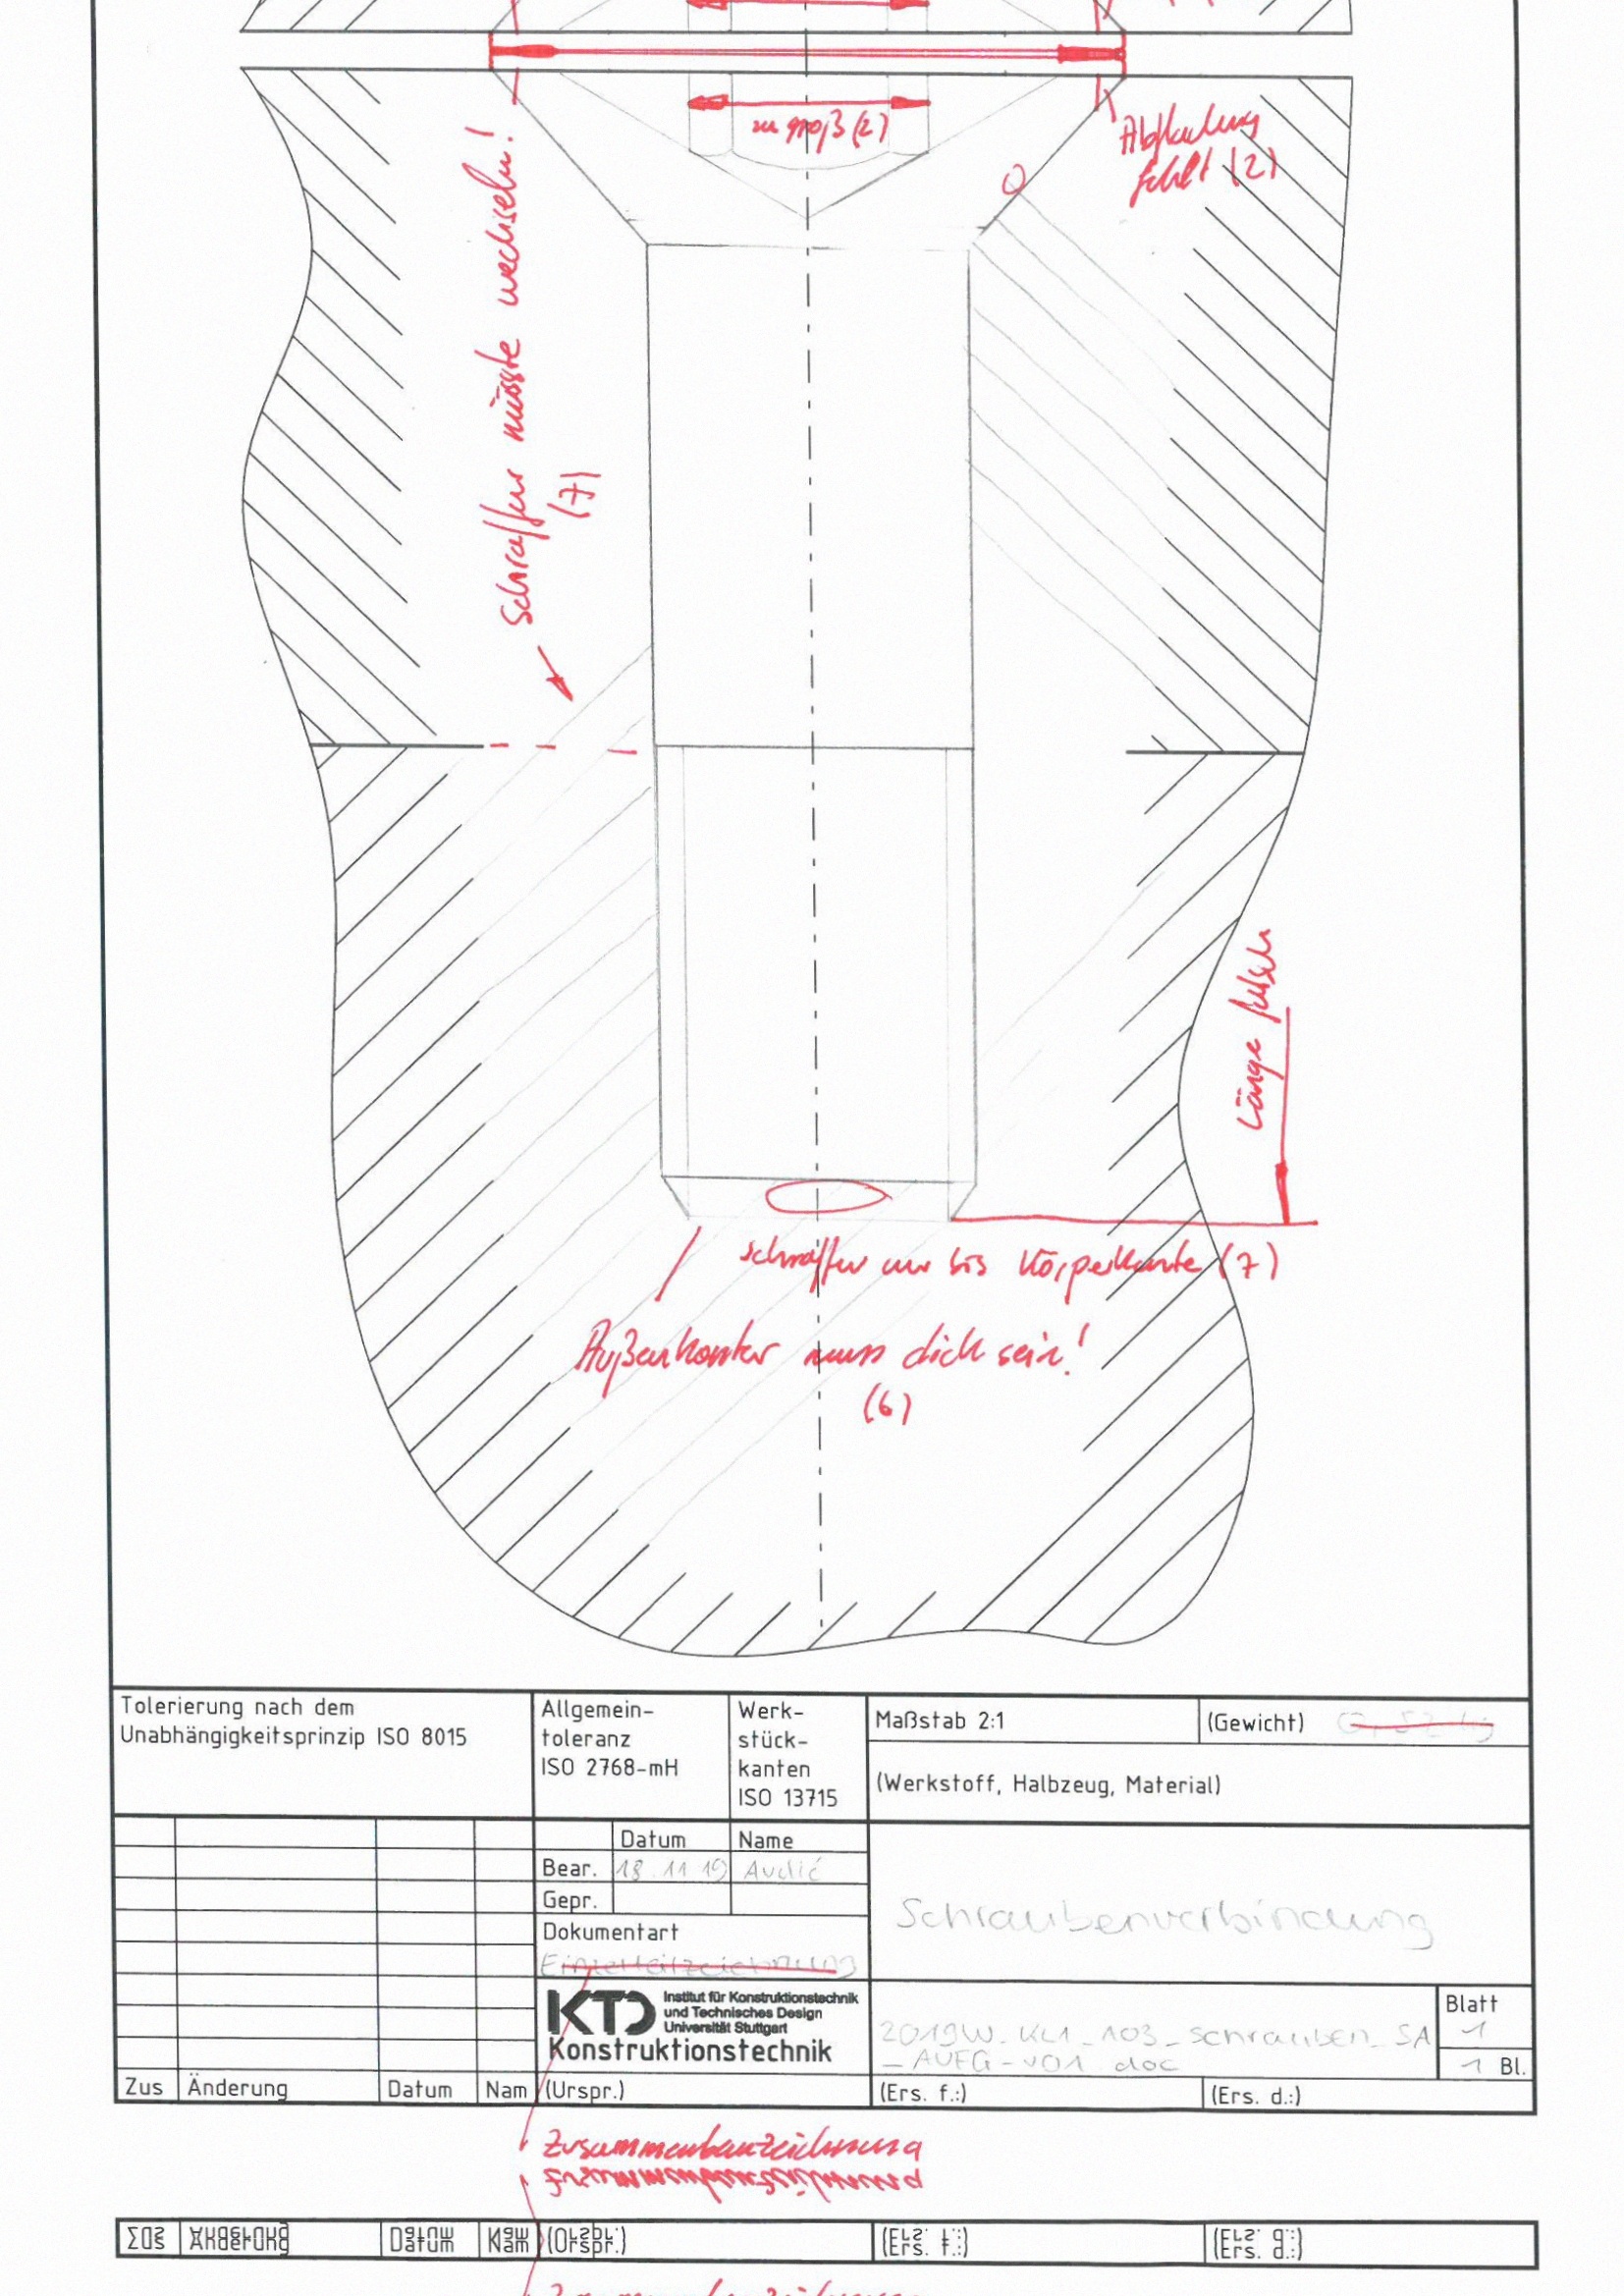 zu groß (2)
Abflachung
fehlt (2)
Schraffur müsste wechseln!
(7)
Länge falsch
schraffur nur bis Körperkante (7)
Außenkontur muss dick sein!
(6)
Tolerierung nach dem
Unabhängigkeitsprinzip ISO 8015
Allgemein-
toleranz
ISO 2768-mH
Werk-
stück-
kanten
ISO 13715
Maßstab 2:1
(Gewicht)
(Werkstoff, Halbzeug, Material)
Datum Name
Bear. 18.11.19 Avdić
Gepr.
Dokumentart
Einzelteilzeichnung
Schraubenverbindung
KTD Institut für Konstruktionstechnik
und Technisches Design
Universität Stuttgart
Konstruktionstechnik
2019W_KL1_103_schrauben_SA
_AUFG_v01_doc
Blatt
1
1 Bl.
Zus Änderung Datum Nam (Urspr.) (Ers. f.:) (Ers. d.:)
Zusammenbauzeichnung